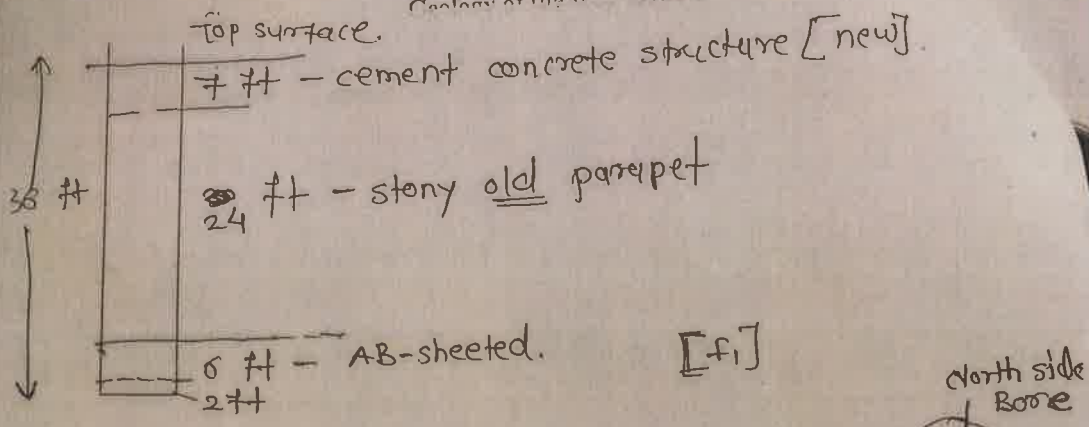 Top surface.
7 ft - cement concrete structure [new].
24 ft - stony old parapet
6 ft - AB-sheeted. [f1]
2ft
North side
Bore